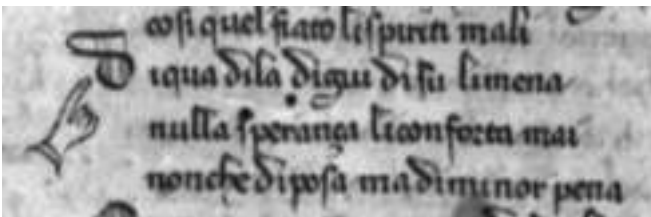 cosi quel fiato li spiriti mali
D iqua dila digiu disu li mena
nulla speranza li conforta mai
non che diposa ma di minor pena